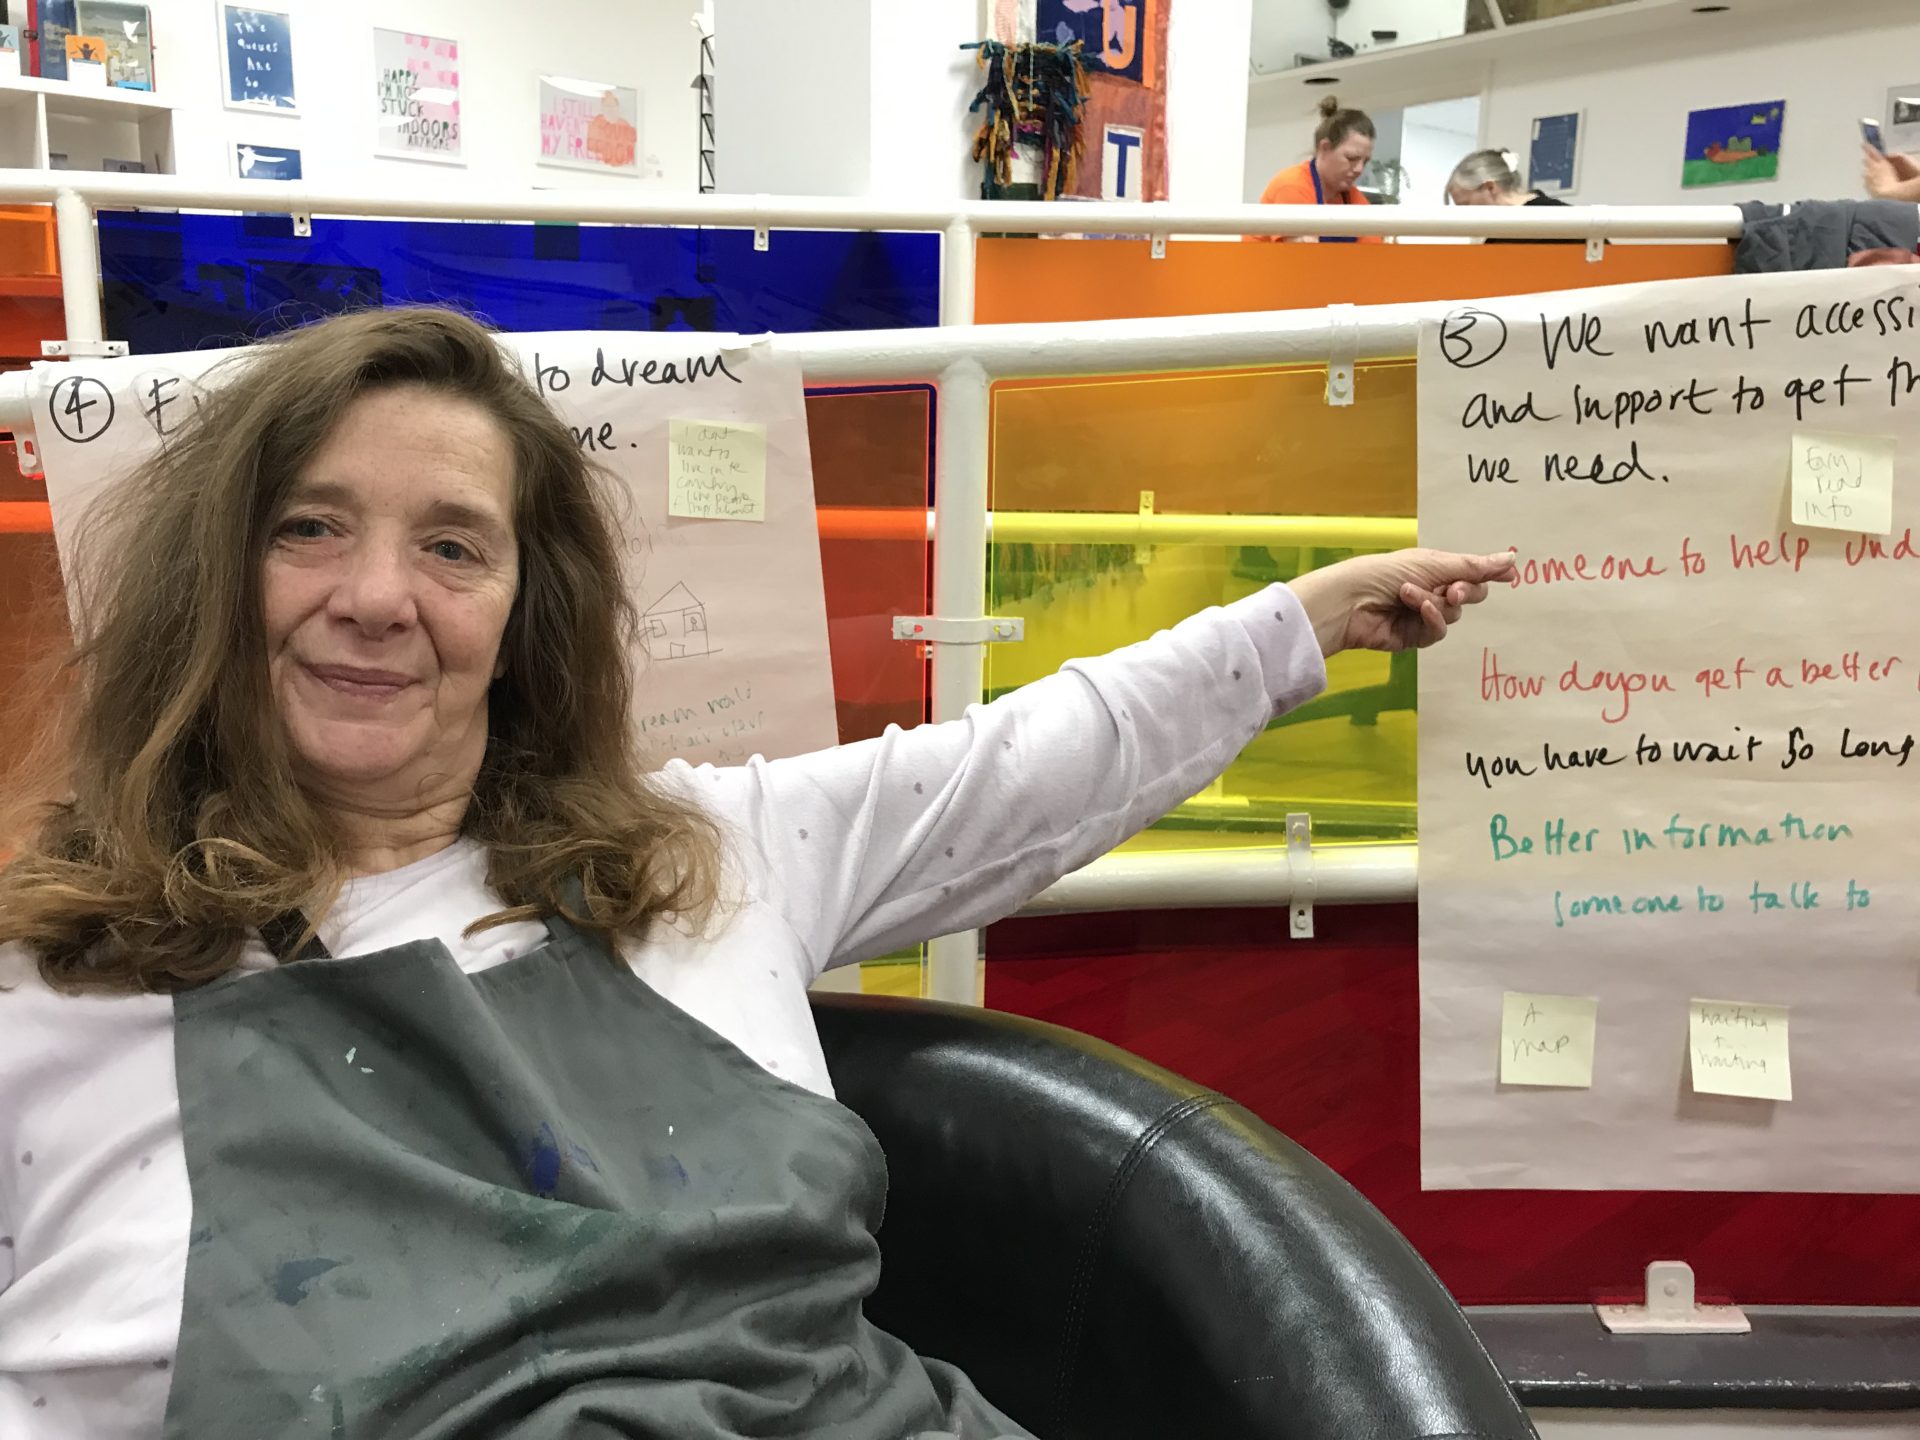 The
queues
Are
So
HAPPY
I'M NOT
STUCK
INDOORS
ANYMORE
I STILL
HAVEN'T FOUND
MY FREEDOM
U
T
④ to dream
me.
I dont
want to
live in the
country
I like people
dream world
③ We want accessi
and support to get th
we need.
Easy
read
info
Someone to help und
How do you get a better
you have to wait so long
Better information
someone to talk to
A
map
waiting
+
waiting